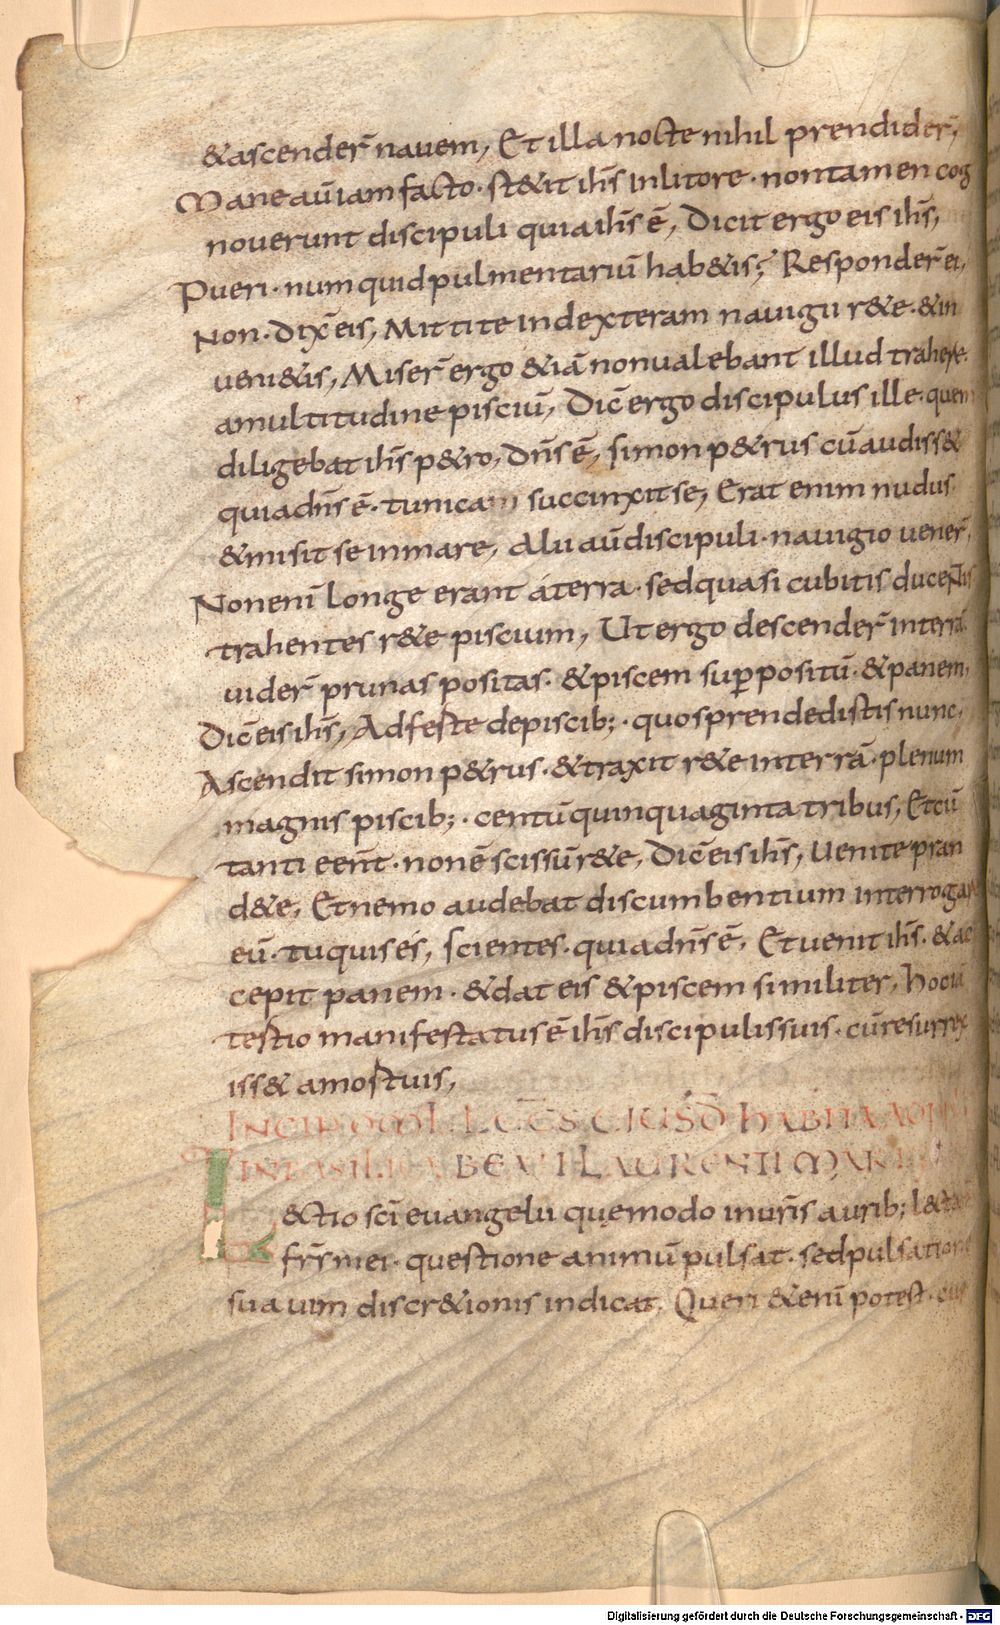 &ascender̄ nauem, Et illa nocte nihil prendider̄,
Mane aū iam facto · st&it ih̄s in litore · non tamen cog
noverunt discipuli quia ih̄s ē, Dicit ergo eis ih̄s,
Pueri · numquid pulmentariū hab&is; Responder̄ ei,
Non · Dix̄ eis, Mittite in dexteram nauigii r&e · &in
ueni&is, Miser̄ ergo &iā non ualebant illud trahere ·
a multitudine pisciū, Dic̄ ergo discipulus ille · quem
diligebat ih̄s p&ro, dn̄s ē, simon p&rus cū audiss&
quia dn̄s ē · tunicam succinxit se, Erat enim nudus
&misit se in mare, Alii aū discipuli · nauigio uener̄,
Non enī longe erant a terra · sed quasi cubitis ducentis
trahentes r&e piscium, Ut ergo descender̄ in terrā
uider̄ prunas positas · &piscem sup̄positū · &panem,
Dic̄ eis ih̄s, Adferte de piscib; · quos prendedistis nunc,
Ascendit simon p&rus · &traxit r&e in terrā · plenum
magnis piscib; · centū quinquaginta tribus, Et cū
tanti eēnt · non ē scissū r&e, Dic̄ eis ih̄s, Uenite pran
d&e, Et nemo audebat discumbentium interrogare
eū · tu quis es, scientes · quia dn̄s ē, Et uenit ih̄s · &ac
cepit panem · &dat eis &piscem similiter, Hoc iā
tertio manifestatus ē ih̄s discipulis suis · cū resurrex
iss& a mortuis,
INCIP OML LEC̄ EIUSD̄ HABITA AD
IN BASILICA BEATI LAURENTII MAR
L&ctio sc̄i euangelii quę modo in ur̄is aurib; lecta
fr̄s mei · questione animū pulsat · sed pulsatione
sua uim discr&ionis indicat, Queri &enī potest · cur
Digitalisierung gefördert durch die Deutsche Forschungsgemeinschaft - DFG